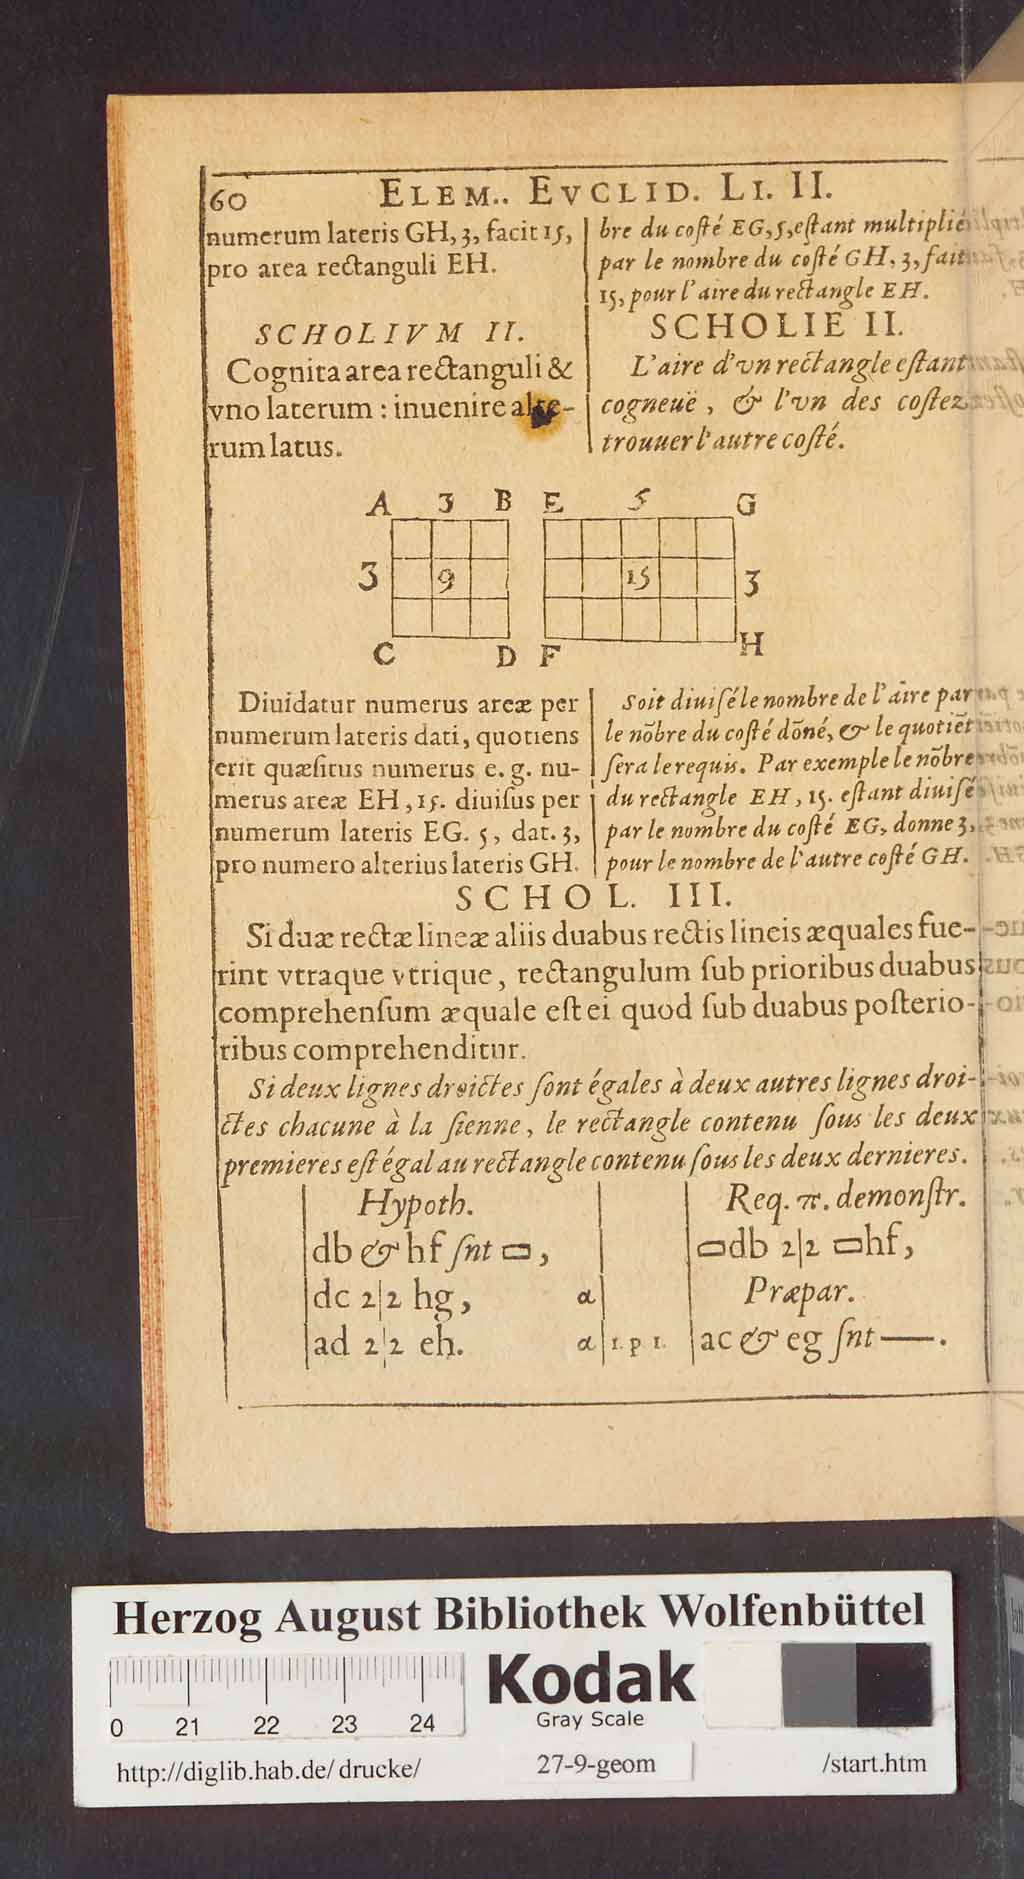 60 ELEM.. EVCLID. LI. II.
numerum lateris GH, 3, facit 15,
pro area rectanguli EH.
SCHOLIVM II.
Cognita area rectanguli &
vno laterum : inuenire alte-
rum latus.
bre du costé EG, 5, estant multiplié
par le nombre du costé GH, 3, fait
15, pour l'aire du rectangle EH.
SCHOLIE II.
L'aire d'vn rectangle estant
cogneuë, & l'vn des costez
trouuer l'autre costé.
A 3 B E 5 G
3 9 15 3
C D F H
Diuidatur numerus areæ per
numerum lateris dati, quotiens
erit quæsitus numerus e. g. nu-
merus areæ EH, 15. diuisus per
numerum lateris EG. 5, dat. 3,
pro numero alterius lateris GH.
Soit diuisé le nombre de l'aire par
le nõbre du costé dõné, & le quotiẽt
sera le requis. Par exemple le nõbre
du rectangle EH, 15. estant diuisé
par le nombre du costé EG, donne 3,
pour le nombre de l'autre costé GH.
SCHOL. III.
Si duæ rectæ lineæ aliis duabus rectis lineis æquales fue-
rint vtraque vtrique, rectangulum sub prioribus duabus
comprehensum æquale est ei quod sub duabus posterio-
ribus comprehenditur.
Si deux lignes droictes sont égales à deux autres lignes droi-
ctes chacune à la sienne, le rectangle contenu sous les deux
premieres est égal au rectangle contenu sous les deux dernieres.
Hypoth.
db & hf snt ▭,
dc 2|2 hg, α
ad 2|2 eh. α
Req. π. demonstr.
▭db 2|2 ▭hf,
Præpar.
1. p 1. ac & eg snt —.
Herzog August Bibliothek Wolfenbüttel
0 21 22 23 24
Kodak
Gray Scale
http://diglib.hab.de/drucke/ 27-9-geom /start.htm